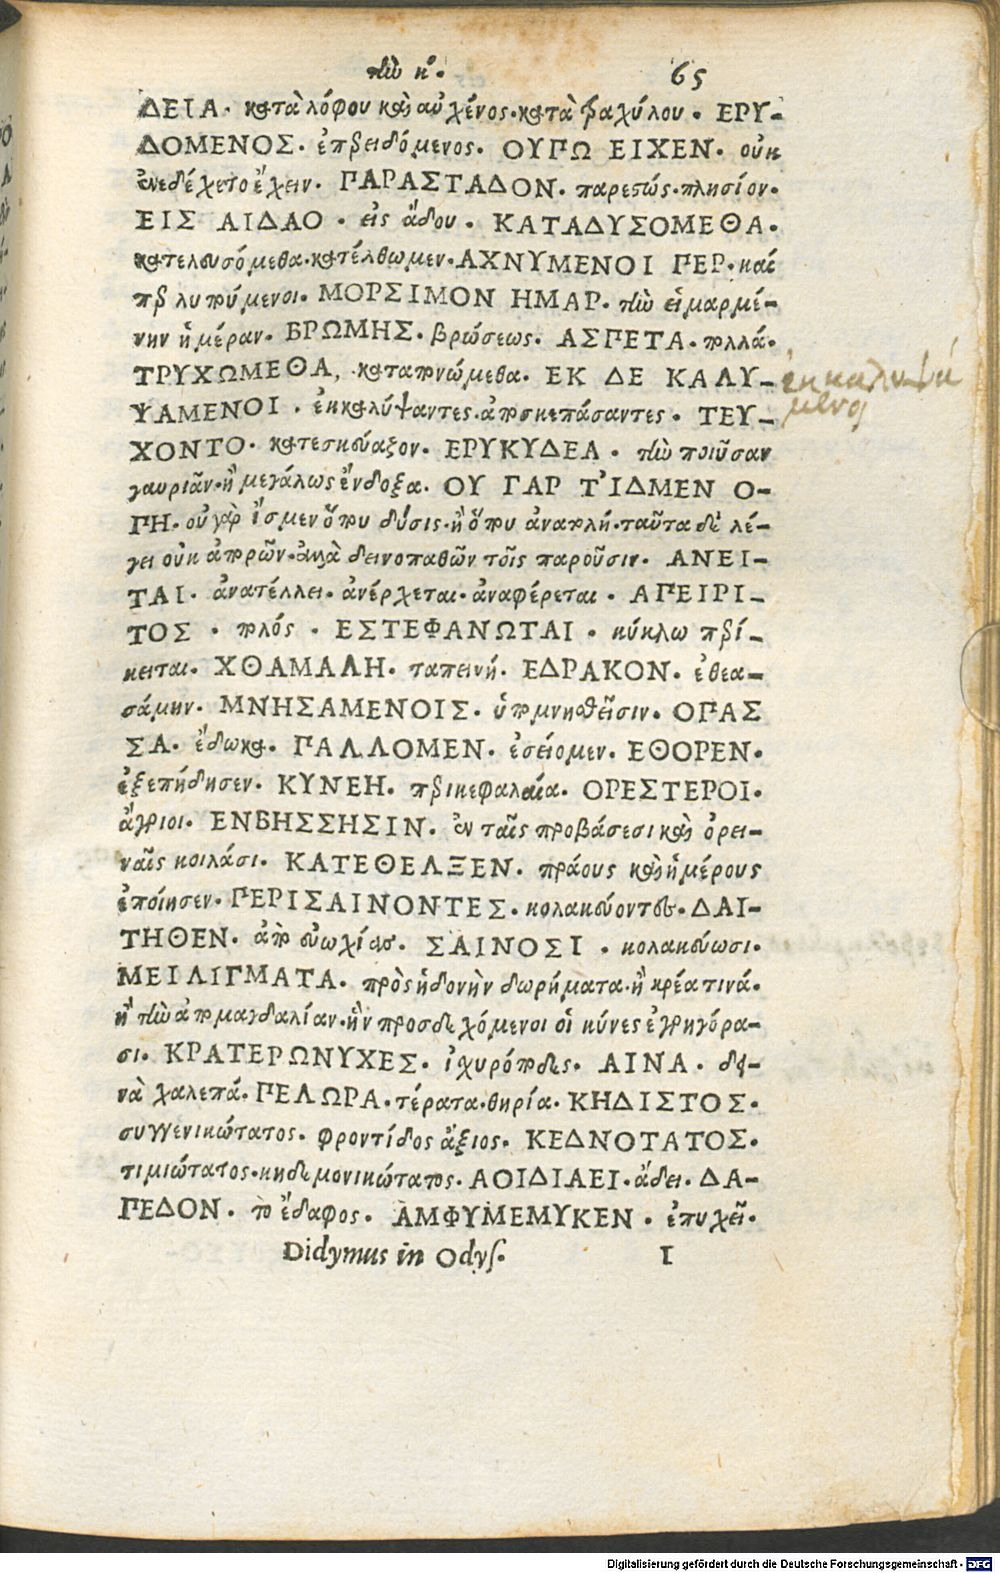 τὴν κ. 65
ΔΕΙΑ· κατὰ λόφου καὶ αὐχένος· κατὰ τραχήλου. ΕΡΥ-
ΔΟΜΕΝΟΣ. ἐπερειδόμενος. ΟΥΠΩ ΕΙΧΕΝ. οὐκ
ἐνεδέχετο ἔχειν. ΠΑΡΑΣΤΑΔΟΝ. παρεστώς· πλησίον.
ΕΙΣ ΑΙΔΑΟ. εἰς ἅδου. ΚΑΤΑΔΥΣΟΜΕΘΑ.
κατελευσόμεθα· κατέλθωμεν. ΑΧΝΥΜΕΝΟΙ ΠΕΡ. καί
περ λυπούμενοι. ΜΟΡΣΙΜΟΝ ΗΜΑΡ. τὴν εἱμαρμέ-
νην ἡμέραν. ΒΡΩΜΗΣ. βρώσεως. ΑΣΠΕΤΑ. πολλά.
ΤΡΥΧΩΜΕΘΑ, καταπονώμεθα. ΕΚ ΔΕ ΚΑΛΥ- ἐκκαλυψά
ΨΑΜΕΝΟΙ. ἐκκαλύψαντες· ἀποσκεπάσαντες. ΤΕΥ- μενοι
ΧΟΝΤΟ. κατεσκεύαζον. ΕΡΥΚΥΔΕΑ. τὴν ποιοῦσαν
γαυριᾶν· ἢ μεγάλως ἔνδοξα. ΟΥ ΓΑΡ Τ' ΙΔΜΕΝ Ο-
ΠΗ. οὐ γὰρ ἴσμεν ὅπου δύσις· ἢ ὅπου ἀνατολή· ταῦτα δὲ λέ-
γει οὐκ ἀπορῶν· ἀλλὰ δεινοπαθῶν τοῖς παροῦσιν. ΑΝΕΙ-
ΤΑΙ. ἀνατέλλει· ἀνέρχεται· ἀναφέρεται. ΑΠΕΙΡΙ-
ΤΟΣ. πολύς. ΕΣΤΕΦΑΝΩΤΑΙ. κύκλω περί-
κειται. ΧΘΑΜΑΛΗ. ταπεινή. ΕΔΡΑΚΟΝ. ἐθεα-
σάμην. ΜΝΗΣΑΜΕΝΟΙΣ. ὑπομνησθεῖσιν. ΟΠΑΣ
ΣΑ. ἔδωκα. ΠΑΛΛΟΜΕΝ. ἐσείομεν. ΕΘΟΡΕΝ.
ἐξεπήδησεν. ΚΥΝΕΗ. περικεφαλαία. ΟΡΕΣΤΕΡΟΙ.
ἄγριοι. ΕΝΒΗΣΣΗΣΙΝ. ἐν ταῖς προβάσεσι καὶ ὀρει-
ναῖς κοιλάσι. ΚΑΤΕΘΕΛΞΕΝ. πράους καὶ ἡμέρους
ἐποίησεν. ΠΕΡΙΣΑΙΝΟΝΤΕΣ. κολακεύοντες. ΔΑΙ-
ΤΗΘΕΝ. ἀπὸ εὐωχίας. ΣΑΙΝΟΣΙ. κολακεύωσι.
ΜΕΙΛΙΓΜΑΤΑ. πρὸς ἡδονὴν δωρήματα· ἢ κρέα τινά.
ἢ τὴν ἀπομαγδαλίαν· ἣν προσδεχόμενοι οἱ κύνες ἐγρηγόρα-
σι. ΚΡΑΤΕΡΩΝΥΧΕΣ. ἰχυρόποδες. ΑΙΝΑ. δει-
νὰ χαλεπά. ΠΕΛΩΡΑ. τέρατα· θηρία. ΚΗΔΙΣΤΟΣ.
συγγενικώτατος. φροντίδος ἄξιος. ΚΕΔΝΟΤΑΤΟΣ.
τιμιώτατος· κηδεμονικώτατος. ΑΟΙΔΙΑΕΙ. ἄδει. ΔΑ-
ΠΕΔΟΝ. τὸ ἔδαφος. ΑΜΦΥΜΕΜΥΚΕΝ. ἐπηχεῖ.
Didymus in Odyſ. I
Digitalisierung gefördert durch die Deutsche Forschungsgemeinschaft - DFG